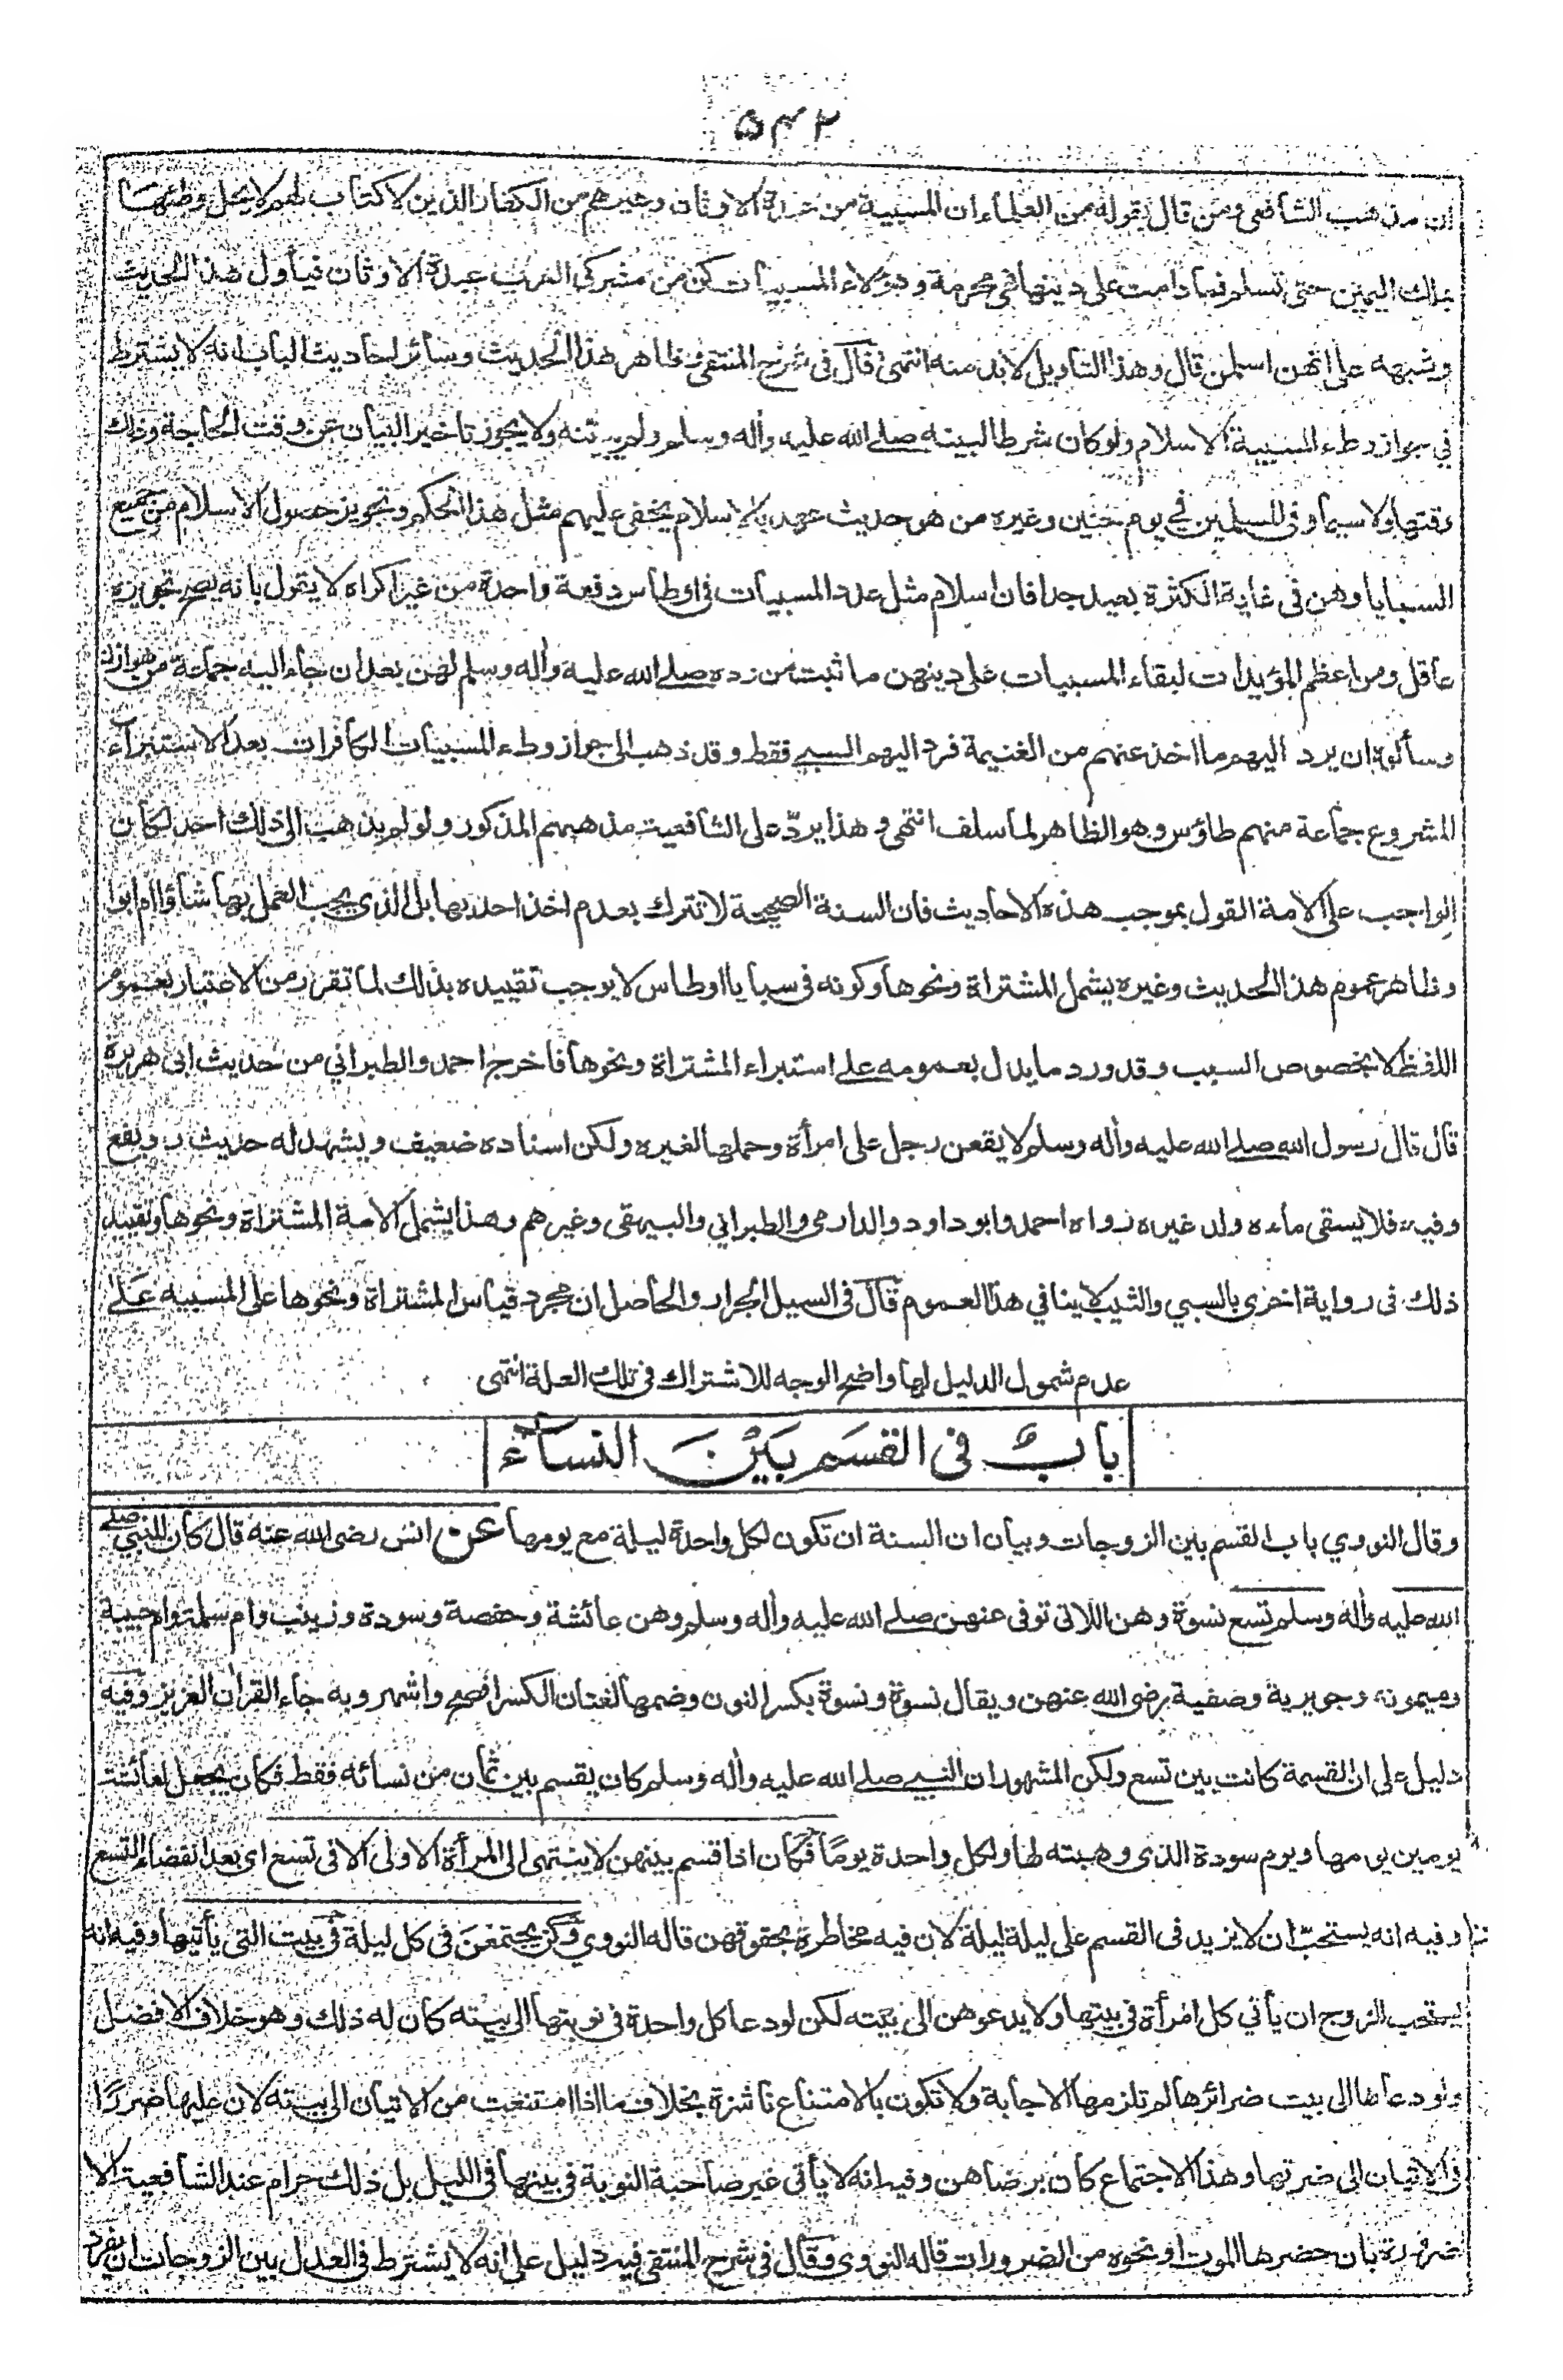 ۵۴۲
ان مذهب الشافعى ومن قال بقوله من العلماء ان المسبية من عبدة الاوثان وغيرهم من الكفار الذين لا كتاب لهم لا يحل وطئها
بملك اليمين حتى تسلم فما دامت على دينها فهى محرمة وهؤلاء المسبيات كن من مشركى العرب عبدة الاوثان فيأول هذا الحديث
وشبهه على انهن اسلمن قال وهذا التاويل لا بد منه انتهى قال فى شرح المنتقى وظاهر هذا الحديث وسائر احاديث الباب انه لا يشترط
في جواز وطء المسبية الاسلام ولو كان شرطا لبينه صلے الله عليه وأله وسلم ولم يبينه ولا يجوز تاخير البيان عن وقت الحاجة وذلك
وقتها ولا سيما وفى المسلمين فى يوم حنين وغيره من هو حديث عهد بالاسلام يخفى عليهم مثل هذا الحكم وتجويز حصول الاسلام من جميع
السبايا وهن فى غاية الكثرة بعيد جدا فان اسلام مثل عدد المسبيات فى اوطاس دفعة واحدة من غير اكراه لا يقول بانه يصح تجويزه
عاقل ومن اعظم المؤيدات لبقاء المسبيات على دينهن ما ثبت من رده صلے الله عليه وأله وسلم لهن بعد ان جاء اليه جماعة من هوازن
وسألوه ان يرد اليهم ما اخذ عنهم من الغنيمة فرد اليهم السبي فقط وقد ذهب الى جواز وطء المسبيات الكافرات بعد الاستبراء
المشروع جماعة منهم طاؤس وهو الظاهر لما سلف انتهى وهذا يردّ على الشافعية مذهبهم المذكور ولو لم يذهب الى ذلك احد لكان
الواجب على الامة القول بموجب هذه الاحاديث فان السنة الصحيحة لا تترك بعدم اخذ احد بها بل الذى يجب العمل بها شاؤا ام ابوا
وظاهر عموم هذا الحديث وغيره يشمل المشتراة ونحوها وكونه فى سبايا اوطاس لا يوجب تقييده بذلك لما تقرر من الاعتبار بعموم
اللفظ لا بخصوص السبب وقد ورد ما يدل بعمومه على استبراء المشتراة ونحوها فاخرج احمد والطبراني من حديث ابى هريرة
قال قال رسول الله صلے الله عليه وأله وسلم لا يقعن رجل على امرأة وحملها لغيره ولكن اسناده ضعيف ويشهد له حديث رويفع
وفيه فلا يسقى ماءه ولد غيره رواه احمد وابو داود والدارمى والطبراني والبيهقى وغيرهم وهذا يشمل الامة المشتراة ونحوها وتقييد
ذلك فى رواية اخرى بالسبي والثيب لا ينافي هذا العموم قال فى السيل الجرار والحاصل ان مجرد قياس المشتراة ونحوها على المسبيه على
عدم شمول الدليل لها واضح الوجه للاشتراك فى تلك العلة انتهى
باب فى القسم بين النسآء
وقال النووي باب القسم بين الزوجات وبيان ان السنة ان تكون لكل واحدة ليلة مع يومها عن انس رضى الله عنه قال كان للنبي صلے
الله عليه وأله وسلم تسع نسوة وهن اللاتى توفى عنهن صلے الله عليه وأله وسلم وهن عائشة وحفصة وسودة وزينب وام سلمة وام حبيبة
وميمونة وجويرية وصفية رضى الله عنهن ويقال نسوة ونسوة بكسر النون وضمها لغتان الكسر افصح واشهر وبه جاء القران العزيز وفيه
دليل على ان القسمة كانت بين تسع ولكن المشهور ان النبي صلے الله عليه وأله وسلم كان يقسم بين ثمان من نسائه فقط فكان يجعل لعائشة
يومين يومها ويوم سودة الذى وهبته لها ولكل واحدة يومًا فكان اذا قسم بينهن لا ينتهى الى المرأة الاولى الا فى تسع اى بعد انقضاء التسع
وفيه انه يستحبّ ان لا يزيد فى القسم على ليلة ليلة لان فيه مخاطرة بحقوقهن قاله النووي فكن يجتمعن فى كل ليلة فى بيت التى يأتيها وفيه انه
يستحب للزوج ان يأتي كل امرأة فى بيتها ولا يدعوهن الى بيته لكن لو دعا كل واحدة فى نوبتها الى بيته كان له ذلك وهو خلاف الافضل
ولو دعاها الى بيت ضرائرها لم تلزمها الاجابة ولا تكون بالامتناع ناشزة بخلاف ما اذا امتنعت من الاتيان الى بيته لان عليها ضررًا
فى الاتيان الى ضرتها وهذا الاجتماع كان برضاهن وفيه انه لا يأتى غير صاحبة النوبة فى بيتها فى الليل بل ذلك حرام عند الشافعية الا
ضرورة بان حضرها الموت او نحوه من الضرورات قاله النووى وقال فى شرح المنتقى فيه دليل على انه لا يشترط فى العدل بين الزوجات ان يفرد